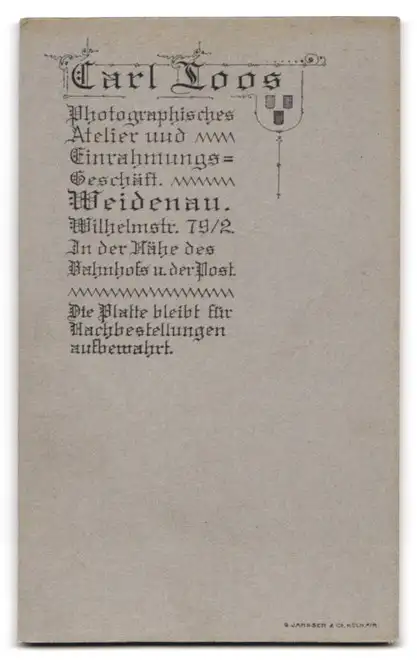 Carl Loos
Photographisches
Atelier und
Einrahmungs=
Geschäft.
Weidenau.
Wilhelmstr. 79/2.
In der Nähe des
Bahnhofs u. der Post.
Die Platte bleibt für
Nachbestellungen
aufbewahrt.